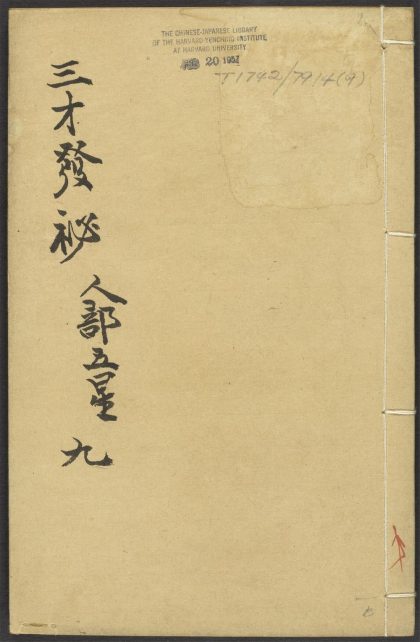 THE CHINESE-JAPANESE LIBRARY
OF THE HARVARD-YENCHING INSTITUTE
AT HARVARD UNIVERSITY
FEB 20 1952
T1742/7914(9)
三才發祕
人部五星
九